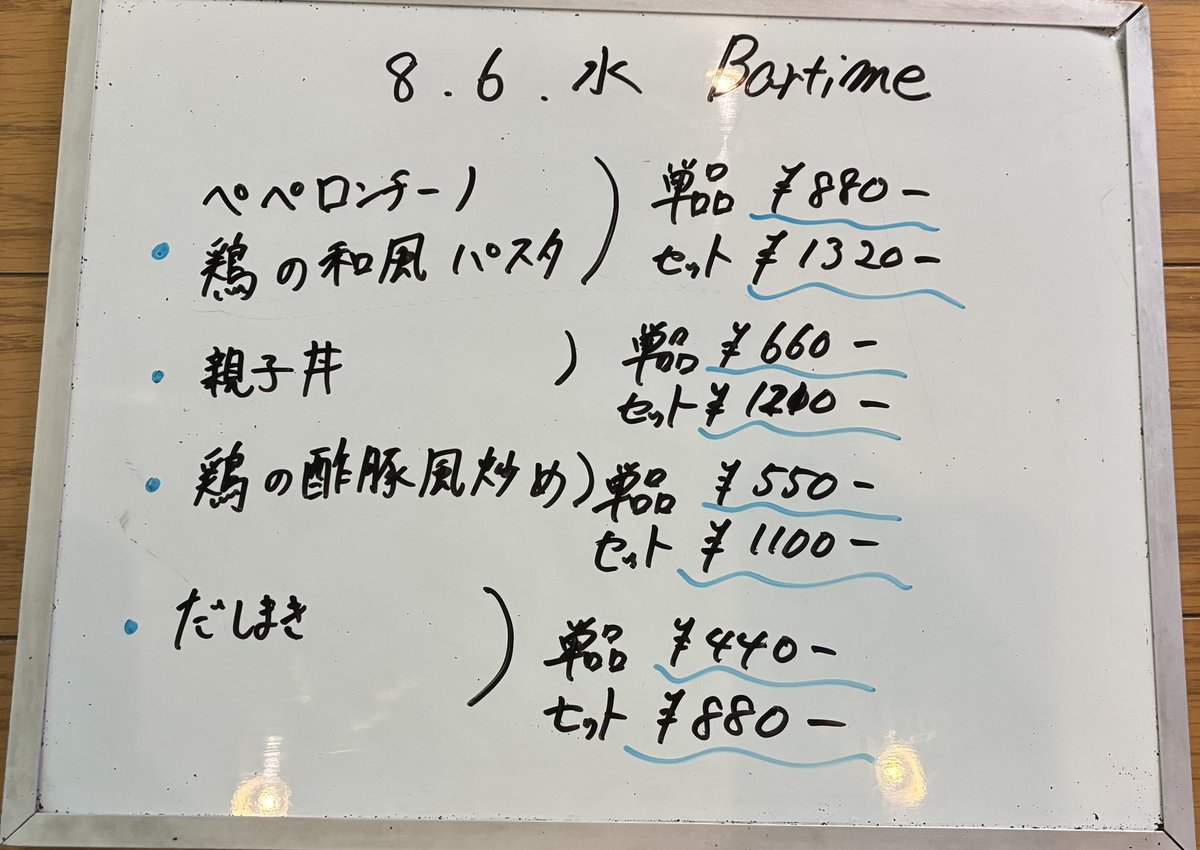 8.6.水 Bartime
ペペロンチーノ
・鶏の和風パスタ ) 単品 ¥880-
セット ¥1320-
・親子丼 ) 単品 ¥660-
セット ¥1210-
・鶏の酢豚風炒め) 単品 ¥550-
セット ¥1100-
・だしまき ) 単品 ¥440-
セット ¥880-